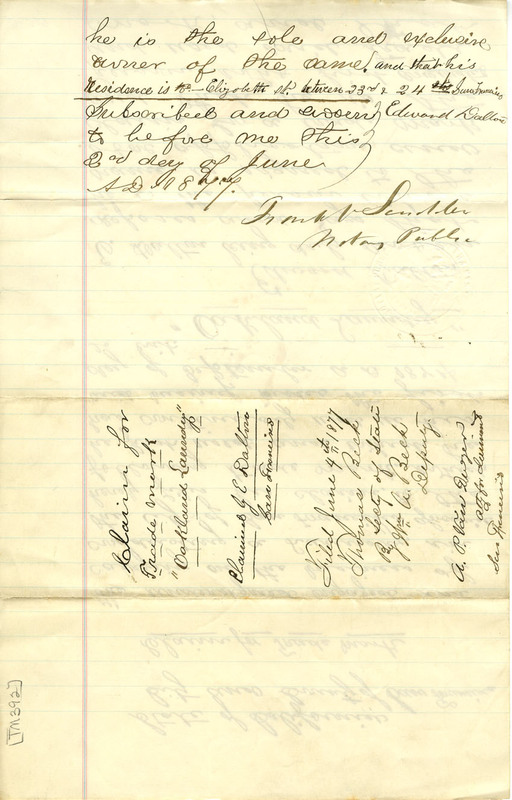 he is the sole and exclusive
owner of the same! and that his
Residence is Elizabeth st. between 23rd & 24th San Francisco
Subscribed and sworn } Edward Dalton
to before me this
2nd day of June
A D 1877.
Frank V
Notary Public
Claim for
Trade Mark
"Oakland Laundry"
Claimed by E Dalton
San Francisco
Filed June 4th 1877
Thomas Beck
Secty of State
By Wm A. Beck
Deputy
A. P. Van Duzer
Atty for
San Francisco
[TM392]